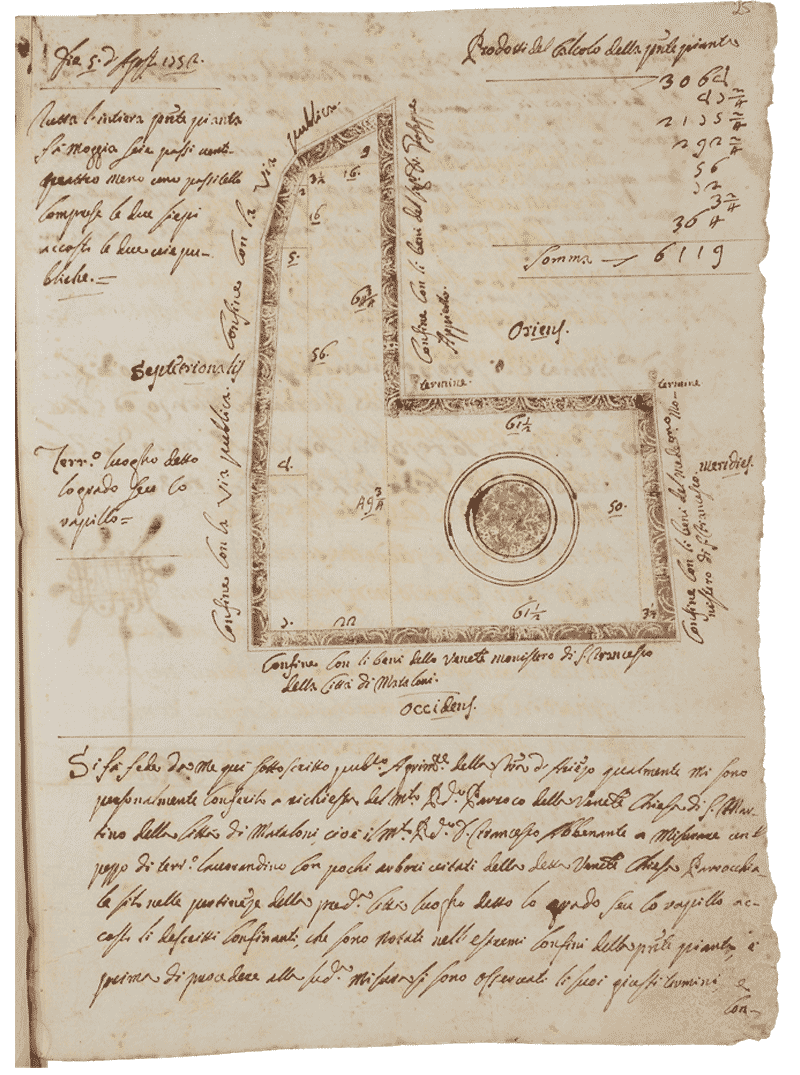 25
Die 5. d' Ag.sto 1752.
Prodotti del Calcolo della pñte pianta
3064
43 2/4
2135 2/4
292 2/4
56
32
3 2/4
364
Somma 6119
Tutta l'intiera pñte pianta
fà moggia seie passi venti
quattro meno uno passitello
comprese le due siepi
accosto le due vie pu-
bliche.=
Septentrionalis
Terr.o luogho detto
lo grado seu lo
vapillo=
Confine con la via publica. Confine con la via publica.
Confine con li beni del
Appierto.
Oriens.
termine
termine
meridies.
Confine con li beni del medesmo Mo-
nistero di S. Francesco
9
2
3 1/2
16.
16
5.
64 3/4
56.
4.
49 3/4
61 1/2
50.
3.
22
61 1/2
3 1/2
Confine con li beni dello Venēte monistero di S. Francesco
della Città di Mataloni.
Occidens.
Si fà fede da me qui sottoscritto pub.co Agrim.re della di qualmente mi sono
personalmente conferito a richiesta del M.to R.do Parroco della Venēte Chiesa di S. Mar-
tino della Città di Mataloni, cioè il M.to R.do D. Francesco Abbenante a misurare un
pezzo di terr.o lavorandino con pochi arbori vitati della detta Venēte Chiesa Parrocchia-
le sito nelle pertineze della pred.a Città luogho detto lo grado seu lo vapillo ac-
costo li descritti confinanti, che sono notati nell'estremi confini della pñte pianta, è
prima di procedere alla sud.a misura si sono osservati li suoi giusti termini, e
con-